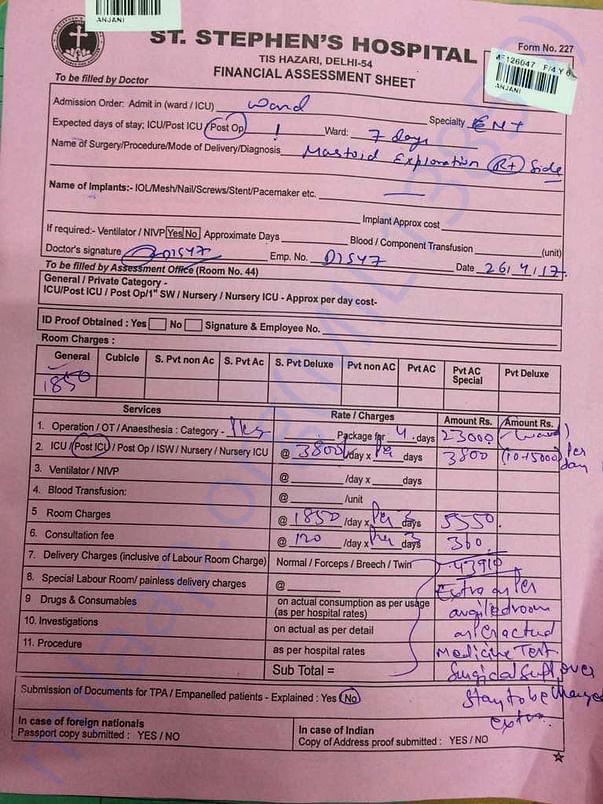 ANJANI
ST. STEPHEN'S HOSPITAL
TIS HAZARI, DELHI-54
FINANCIAL ASSESSMENT SHEET
Form No. 227
F/4 Y
ANJANI
To be filled by Doctor
Admission Order: Admit in (ward / ICU) ward Specialty ENT
Expected days of stay; ICU/Post ICU / Post Op 1 Ward: 7 days
Name of Surgery/Procedure/Mode of Delivery/Diagnosis Mastoid Exploration (Rt) Side
Name of Implants:- IOL/Mesh/Nail/Screws/Stent/Pacemaker etc. —
Implant Approx cost
If required:- Ventilator / NIVP Yes No Approximate Days Blood / Component Transfusion (unit)
Doctor's signature D1547 Emp. No. D1547 Date 26/4/17
To be filled by Assessment Office (Room No. 44)
General / Private Category -
ICU/Post ICU / Post Op/1" SW / Nursery / Nursery ICU - Approx per day cost-
ID Proof Obtained : Yes No Signature & Employee No.
Room Charges :
General Cubicle S. Pvt non Ac S. Pvt Ac S. Pvt Deluxe Pvt non AC Pvt AC Pvt AC Special Pvt Deluxe
1850
Services Rate / Charges Amount Rs. Amount Rs.
1. Operation / OT / Anaesthesia : Category - Package for 4 days 23000 (ward)
2. ICU / Post ICU / Post Op / ISW / Nursery / Nursery ICU @ 3800 /day x Per days 3800 per day
3. Ventilator / NIVP @ /day x days
4. Blood Transfusion: @ /unit
5 Room Charges @ 1850 /day x Per 3 days 5550
6. Consultation fee @ 120 /day x Per 3 days 360
7. Delivery Charges (inclusive of Labour Room Charge) Normal / Forceps / Breech / Twin 43910
8. Special Labour Room/ painless delivery charges @ Extra as Per
9 Drugs & Consumables on actual consumption as per usage (as per hospital rates) room
10. Investigations on actual as per detail as Per actual
11. Procedure as per hospital rates Medicine Test
Sub Total = Surgical over
Submission of Documents for TPA / Empanelled patients - Explained : Yes / No stay to be charged
extra.
In case of foreign nationals In case of Indian
Passport copy submitted : YES / NO Copy of Address proof submitted : YES / NO